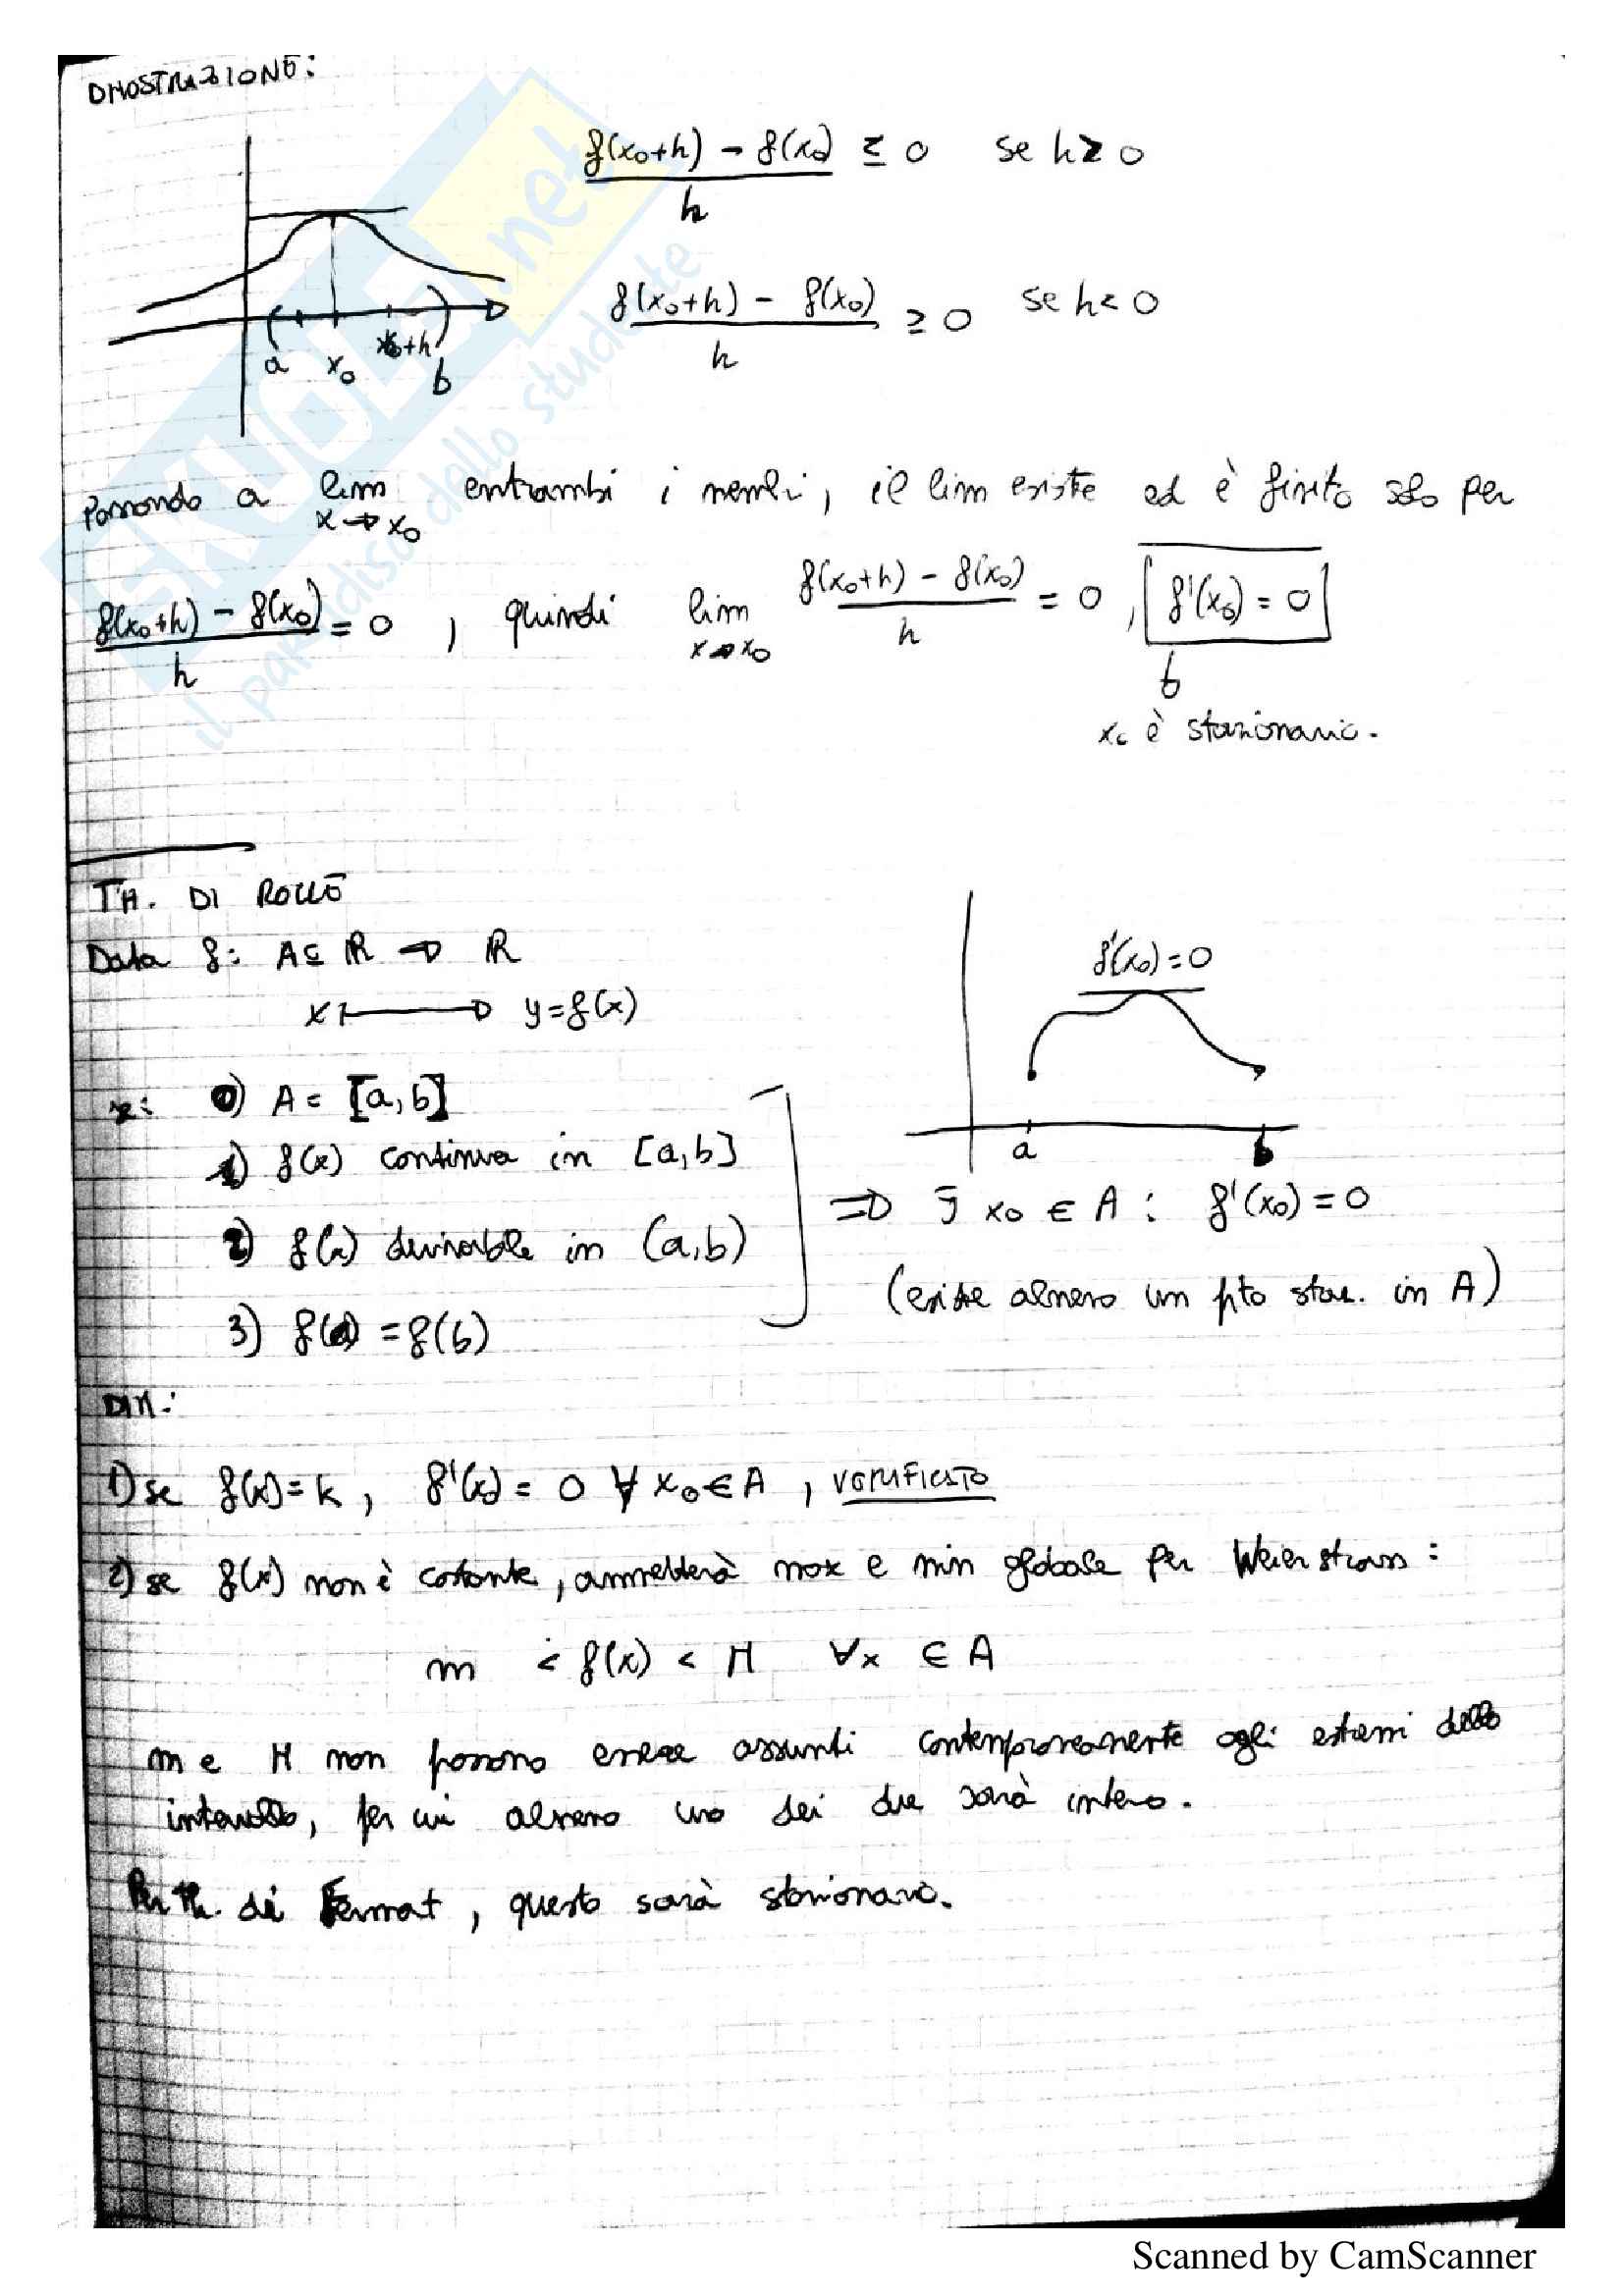 DIMOSTRAZIONE:
f(x₀+h) - f(x₀) / h ≤ 0 se h ≥ 0
f(x₀+h) - f(x₀) / h ≥ 0 se h < 0
a x₀ x₀+h b
Passando a lim x→x₀ entrambi i membri, il lim esiste ed è finito solo per
f(x₀+h) - f(x₀) / h = 0 , quindi lim x→x₀ f(x₀+h) - f(x₀) / h = 0 , f'(x₀) = 0
x₀ è stazionario.
TH. DI ROLLE
Data f: A ⊆ ℝ → ℝ
x ↦ y = f(x)
f'(x₀) = 0
a b
se: 0) A = [a,b]
1) f(x) continua in [a,b]
2) f(x) derivabile in (a,b)
3) f(a) = f(b)
⇒ ∃ x₀ ∈ A : f'(x₀) = 0
(esiste almeno un pto staz. in A)
DIM:
1) se f(x) = k , f'(x₀) = 0 ∀ x₀ ∈ A , VERIFICATO
2) se f(x) non è costante, ammetterà max e min globale per Weierstrass :
m < f(x) < M ∀x ∈ A
m e M non possono essere assunti contemporaneamente agli estremi dello
intervallo, per cui almeno uno dei due sarà interno.
Per th. di Fermat , questo sarà stazionario.
SKUOLA.net
il paradiso dello studente
Scanned by CamScanner